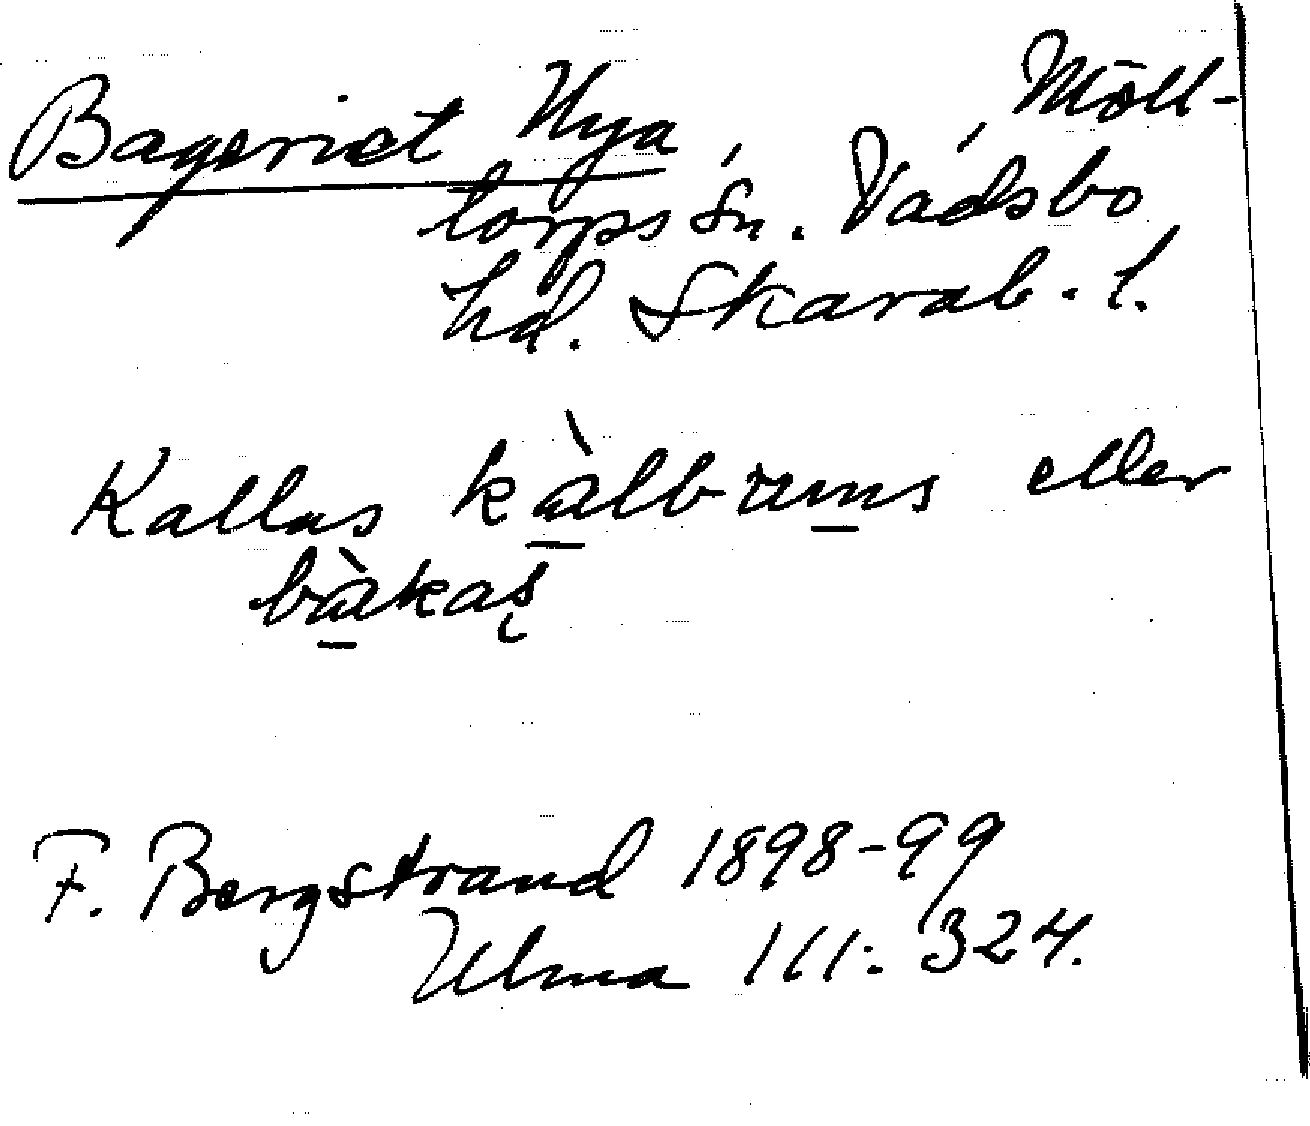 Bageriet Nya, Möll-
torps sn. Vadsbo
hd. Skarab. l.
Kallas kàlbrums eller
bàkas
F. Bergstrand 1898-99
Ulma 111:324.